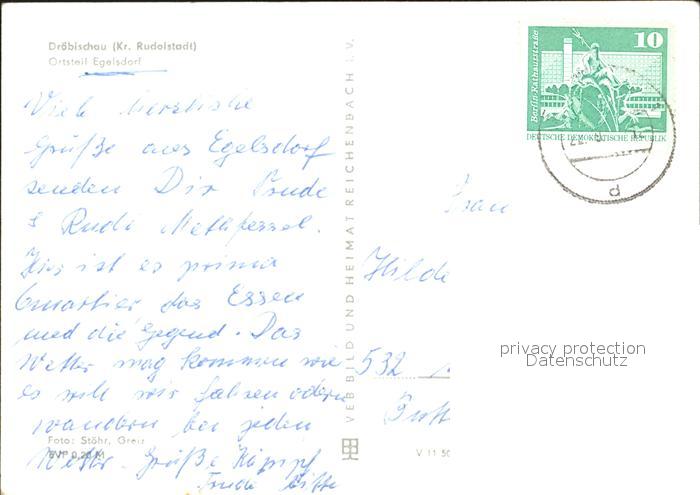 Dröbischau (Kr. Rudolstadt)
Ortsteil Egelsdorf
Viele herzliche
Grüße aus Egelsdorf
senden Dir
& Rudi
Hier ist es prima
Quartier das Essen
und die Gegend. Das
Wetter mag kommen wie
es will wir fahren oder
wandern bei jeden
Wetter. Grüße
Foto: Stöhr, Greiz
EVP 0,20 M
VEB BILD UND HEIMAT REICHENBACH i. V.
V 11 50
10
Berlin-Rathausstraße
DEUTSCHE DEMOKRATISCHE REPUBLIK
d
Frau
Hilde
532
privacy protection
Datenschutz